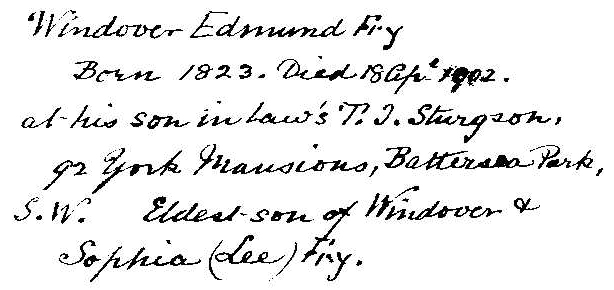 Windover Edmund Fry
Born 1823. Died 18 Apl 1902.
at his son in law's T. J. Sturgson,
92 York Mansions, Battersea Park,
S.W. Eldest son of Windover &
Sophia (Lee) Fry.